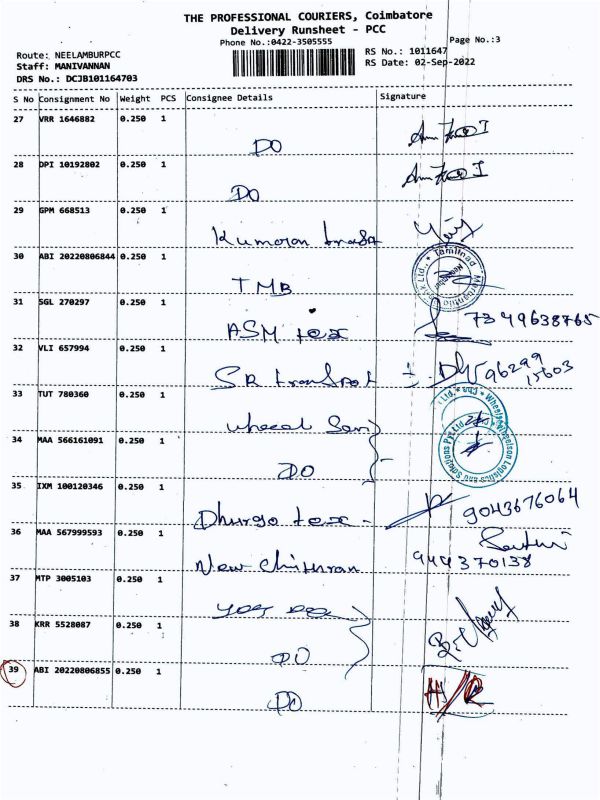 THE PROFESSIONAL COURIERS, Coimbatore
Delivery Runsheet - PCC
Phone No.:0422-3505555
Page No.:3
Route: NEELAMBURPCC
RS No.: 1011647
Staff: MANIVANNAN
RS Date: 02-Sep-2022
DRS No.: DCJB101164703
S No Consignment No Weight PCS Consignee Details Signature
27 VRR 1646882 0.250 1
DO
28 DPI 10192802 0.250 1
DO
29 GPM 668513 0.250 1
Kumaran
30 ABI 20220806844 0.250 1
TMB
Tamilnad Mercantile
31 SGL 270297 0.250 1
ASM tex 7349638765
32 VLI 657994 0.250 1
SR 96299
15603
33 TUT 780360 0.250 1
34 MAA 566161091 0.250 1
DO
35 IXM 100120346 0.250 1
Dhurga tex - 9043676064
36 MAA 567999593 0.250 1
New 9449370138
37 MTP 3005103 0.250 1
38 KRR 5528087 0.250 1
DO
39 ABI 20220806855 0.250 1
DO